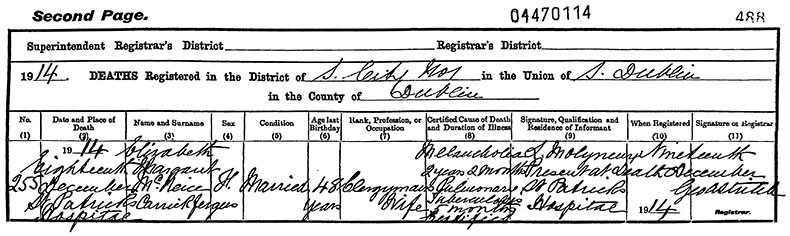 Second Page.
04470114
488
Superintendent Registrar's District
Registrar's District
1914. DEATHS Registered in the District of S. City No 1 in the Union of S. Dublin
in the County of Dublin
No.
(1)
Date and Place of
Death
(2)
Name and Surname
(3)
Sex
(4)
Condition
(5)
Age last
Birthday
(6)
Rank, Profession, or
Occupation
(7)
Certified Cause of Death
and Duration of Illness
(8)
Signature, Qualification and
Residence of Informant
(9)
When Registered
(10)
Signature or Registrar
(11)
255
1914
Eighteenth
December
St Patricks
Hospital
Elizabeth
Margaret
McNeice
Carrickfergus
F.
Married
48
years
Clergymans
Wife
Melancholia
2 years 2 months
Pulmonary
Tuberculosis
months
Certified
S. Molyneux
Present at Death
St Patricks
Hospital
Nineteenth
December
1914
Registrar.